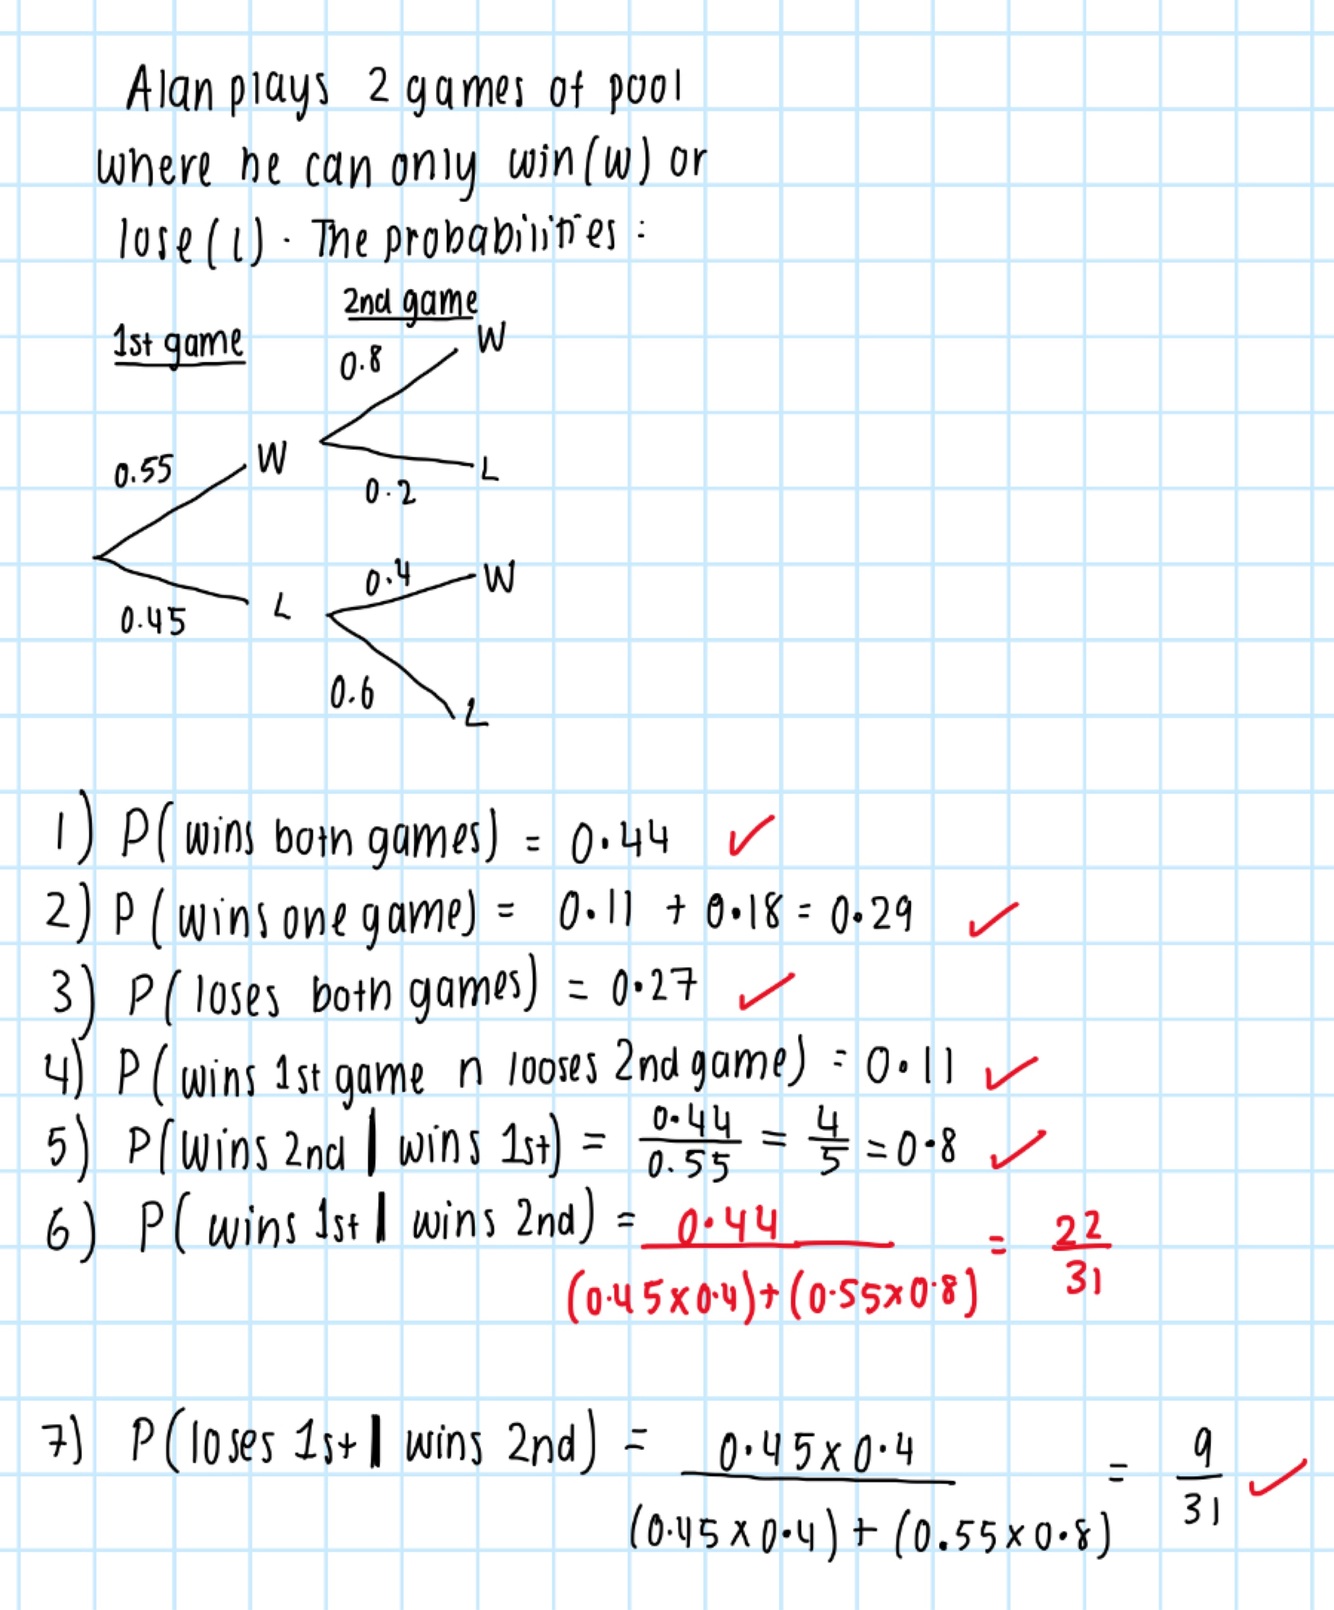 Alan plays 2 games of pool
where he can only win(w) or
lose(l). The probabilities:
2nd game
1st game
W
0.8
0.55
W
L
0.2
0.4
W
0.45
L
0.6
L
1) P(wins both games) = 0.44 ✓
2) P(wins one game) = 0.11 + 0.18 = 0.29 ✓
3) P(loses both games) = 0.27 ✓
4) P(wins 1st game n looses 2nd game) = 0.11 ✓
5) P(wins 2nd | wins 1st) = 0.44/0.55 = 4/5 = 0.8 ✓
6) P(wins 1st | wins 2nd) = 0.44/((0.45x0.4)+(0.55x0.8)) = 22/31
7) P(loses 1st | wins 2nd) = 0.45x0.4/((0.45x0.4)+(0.55x0.8)) = 9/31 ✓